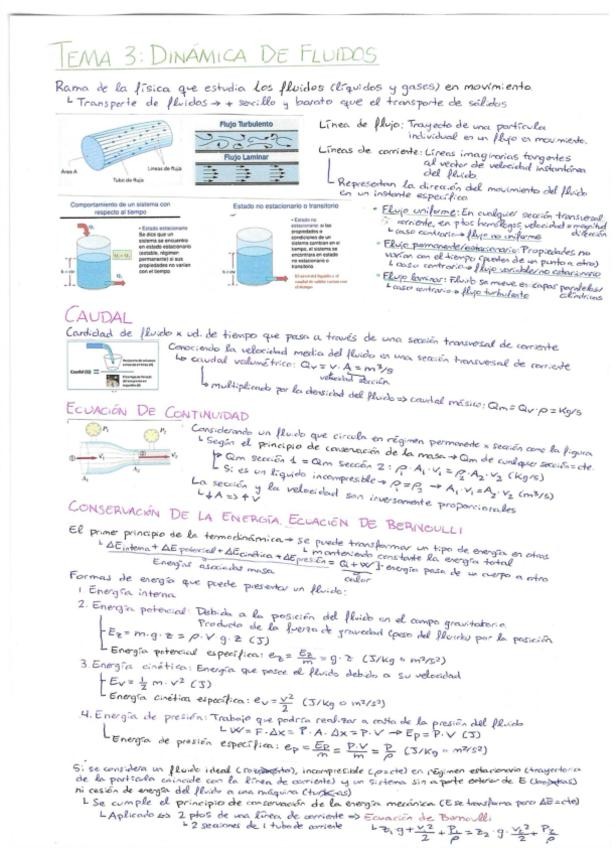 TEMA 3: DINÁMICA DE FLUIDOS
Rama de la física que estudia los fluidos (líquidos y gases) en movimiento
↳ Transporte de fluidos → + sencillo y barato que el transporte de sólidos
Área A
Líneas de flujo
Tubo de flujo
Flujo Turbulento
Flujo Laminar
Línea de flujo: Trayecto de una partícula
individual en un flujo en movimiento.
Líneas de corriente: Líneas imaginarias tangentes
al vector de velocidad instantánea
del fluido
↳ Representan la dirección del movimiento del fluido
en un instante específico
Comportamiento de un sistema con
respecto al tiempo
• Estado estacionario
Se dice que un
sistema se encuentra
en estado estacionario
(estable, régimen
permanente) si sus
propiedades no varían
con el tiempo
Estado no estacionario o transitorio
• Estado no
estacionario: si las
propiedades o
condiciones de un
sistema cambian en el
tiempo, el sistema se
encontrará en estado
no estacionario o
transitorio
• Flujo uniforme: En cualquier sección transversal
corriente, en ptos homólogos, velocidad = magnitud
↳ caso contrario → flujo no uniforme
• Flujo permanente/estacionario: Propiedades no
varían con el tiempo (pueden de un punto a otro)
↳ caso contrario → flujo variable/no estacionario
• Flujo laminar: Fluido se mueve en capas paralelas/
cilíndricas
↳ caso contrario → flujo turbulento
CAUDAL
Cantidad de fluido x ud. de tiempo que pasa a través de una sección transversal de corriente
Conociendo la velocidad media del fluido en una sección transversal de corriente
↳ caudal volumétrico: Qv = v · A = m³/s
velocidad sección
↳ multiplicado por la densidad del fluido ⇒ caudal másico: Qm = Qv · ρ = Kg/s
ECUACIÓN DE CONTINUIDAD
P₁
P₂
① v₁
② v₂
A₁
A₂
Considerando un fluido que circula en régimen permanente x sección como la figura
↳ Según el principio de conservación de la masa → Qm de cualquier sección = cte.
Qm sección 1 = Qm sección 2: ρ₁ · A₁ · V₁ = ρ₂ · A₂ · V₂ (Kg/s)
↳ Si es un líquido incompresible → ρ₁ = ρ₂ → A₁ · V₁ = A₂ · V₂ (m³/s)
La sección y la velocidad son inversamente proporcionales
↳ ↓A ⇒ ↑V
CONSERVACIÓN DE LA ENERGÍA. ECUACIÓN DE BERNOULLI
El primer principio de la termodinámica → se puede transformar un tipo de energía en otras
↳ manteniendo constante la energía total
↳ ΔE interna + ΔE potencial + ΔE cinética + ΔE presión = Q + W } energía pasa de un cuerpo a otro
Energías asociadas masa
calor
Formas de energía que puede presentar un fluido:
1. Energía interna
2. Energía potencial: Debida a la posición del fluido en el campo gravitatorio
Producto de la fuerza de gravedad (peso del fluido) por la posición
Ez = m · g · z = ρ · V · g · z (J)
↳ Energía potencial específica: ez = Ez/m = g · z (J/Kg o m²/s²)
3. Energía cinética: Energía que posee el fluido debido a su velocidad
Ev = 1/2 m · v² (J)
↳ Energía cinética específica: ev = v²/2 (J/Kg o m²/s²)
4. Energía de presión: Trabajo que podría realizar a costa de la presión del fluido
↳ W = F · Δx = P · A · Δx = P · V → Ep = P · V (J)
↳ Energía de presión específica: ep = Ep/m = P·V/m = P/ρ (J/Kg o m²/s²)
Si se considera un fluido ideal incompresible (ρ=cte) en régimen estacionario (trayectoria
de la partícula coincide con la línea de corriente) y un sistema sin aporte exterior de E
ni cesión de energía del fluido a una máquina
↳ Se cumple el principio de conservación de la energía mecánica (E se transforma pero ΔE=cte)
↳ Aplicando 2 ptos de una línea de corriente ⇒ Ecuación de Bernoulli
↳ 2 secciones de 1 tubo de corriente
↳ z₁ g + v₁²/2 + P₁/ρ = z₂ · g · v₂²/2 + P₂/ρ